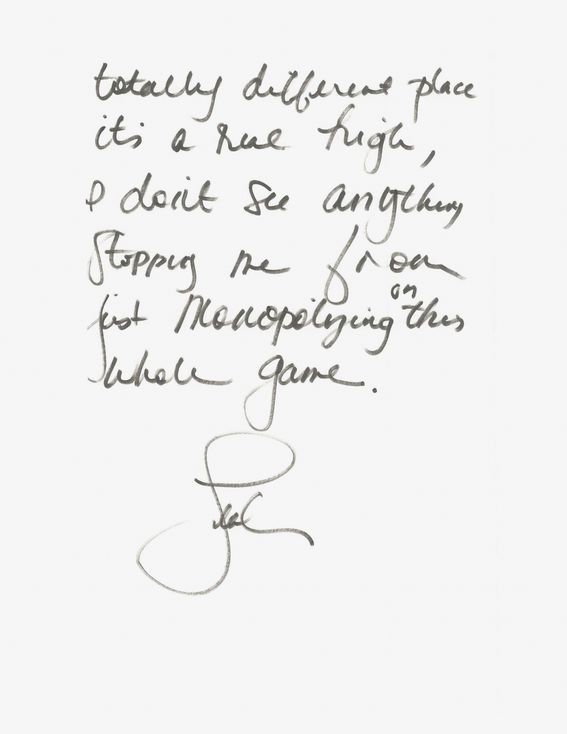 totally different place
it's a real high,
I don't see anything
stopping me from
just Monopolying on this
whole game.